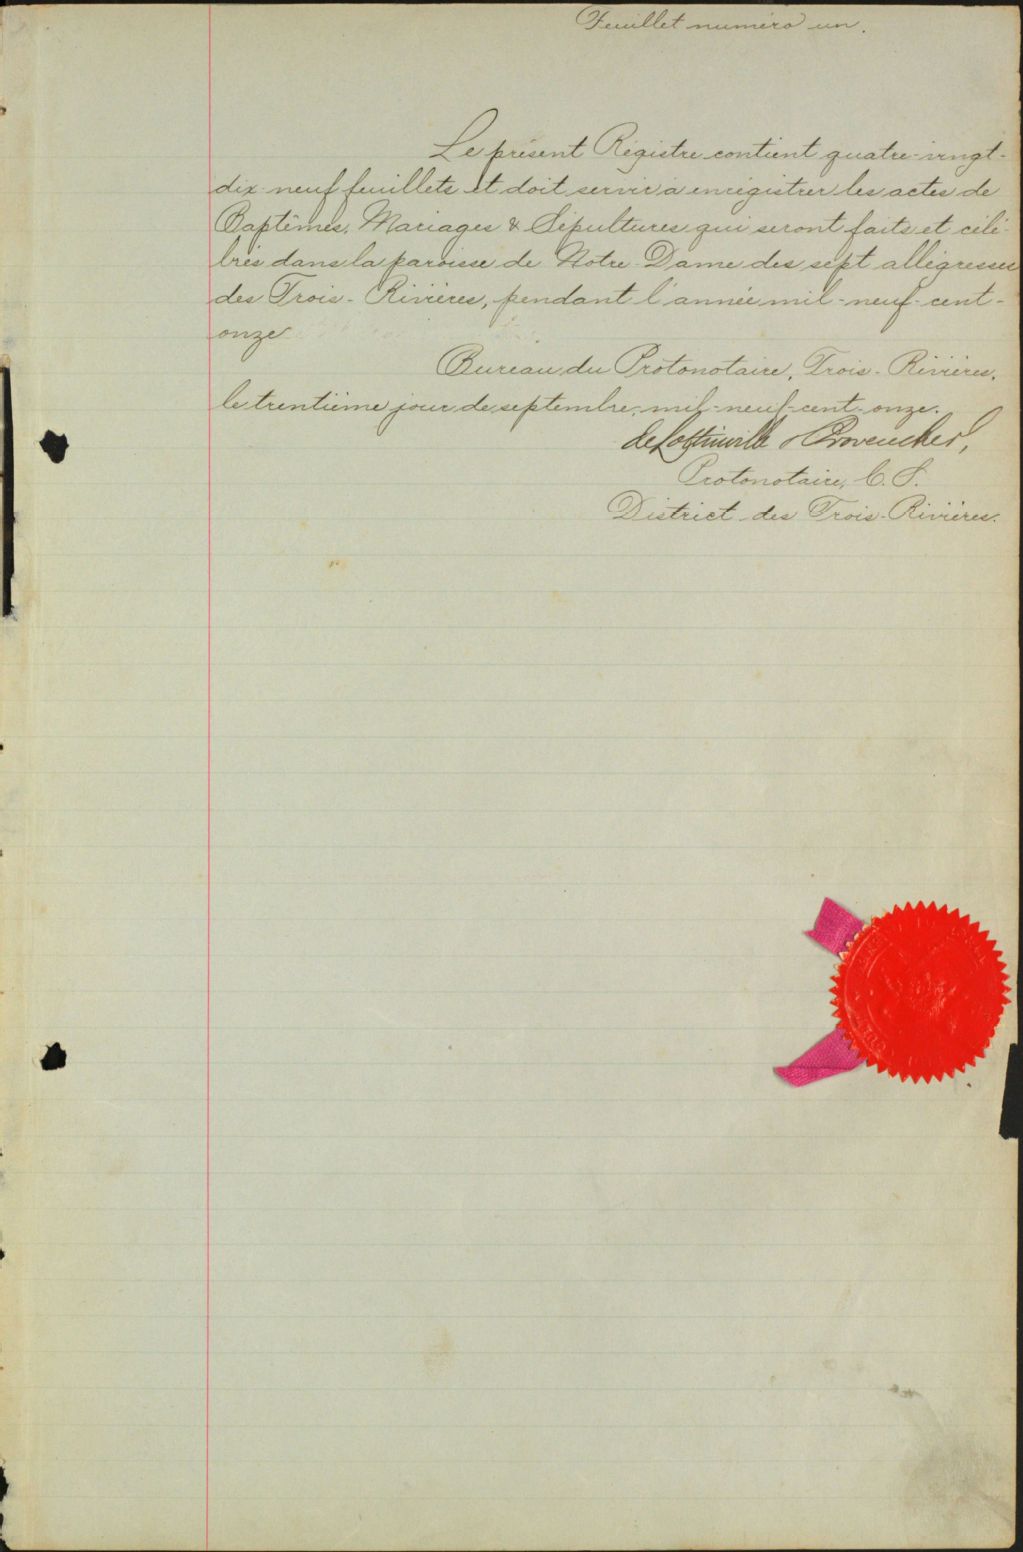 Feuillet numéro un.
Le présent Régistre contient quatre-vingt-
dix-neuf feuillets et doit servir à enrégistrer les actes de
Baptêmes, Mariages & Sépultures qui seront faits et célé-
brés dans la paroisse de Notre-Dame des sept allégresses
des Trois-Rivières, pendant l'année mil-neuf-cent-
onze
Bureau du Protonotaire, Trois-Rivières,
le trentième jour de septembre, mil-neuf-cent-onze.
de Lottinville & Provencher,
Protonotaire, C. S.
District des Trois-Rivières.